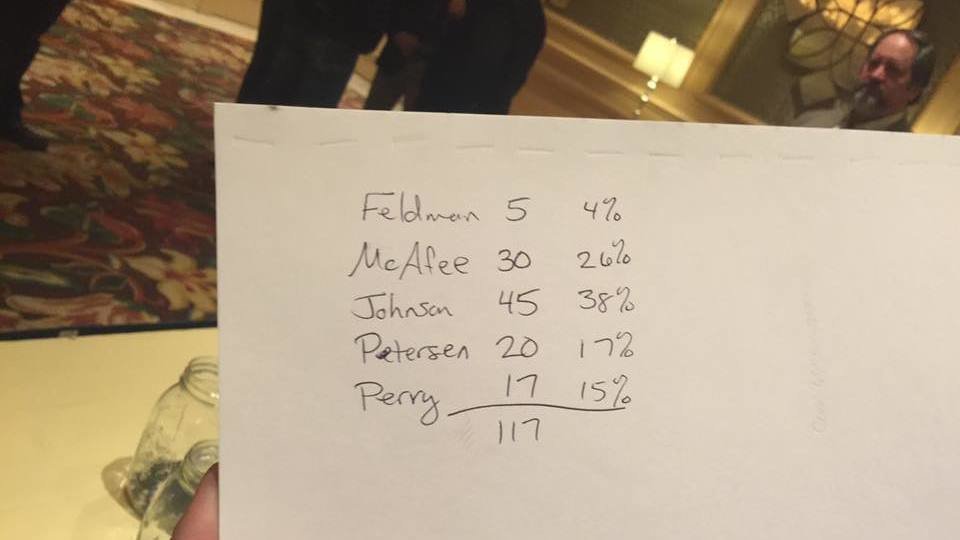 Feldman 5 4%
McAfee 30 26%
Johnson 45 38%
Petersen 20 17%
Perry 17 15%
117